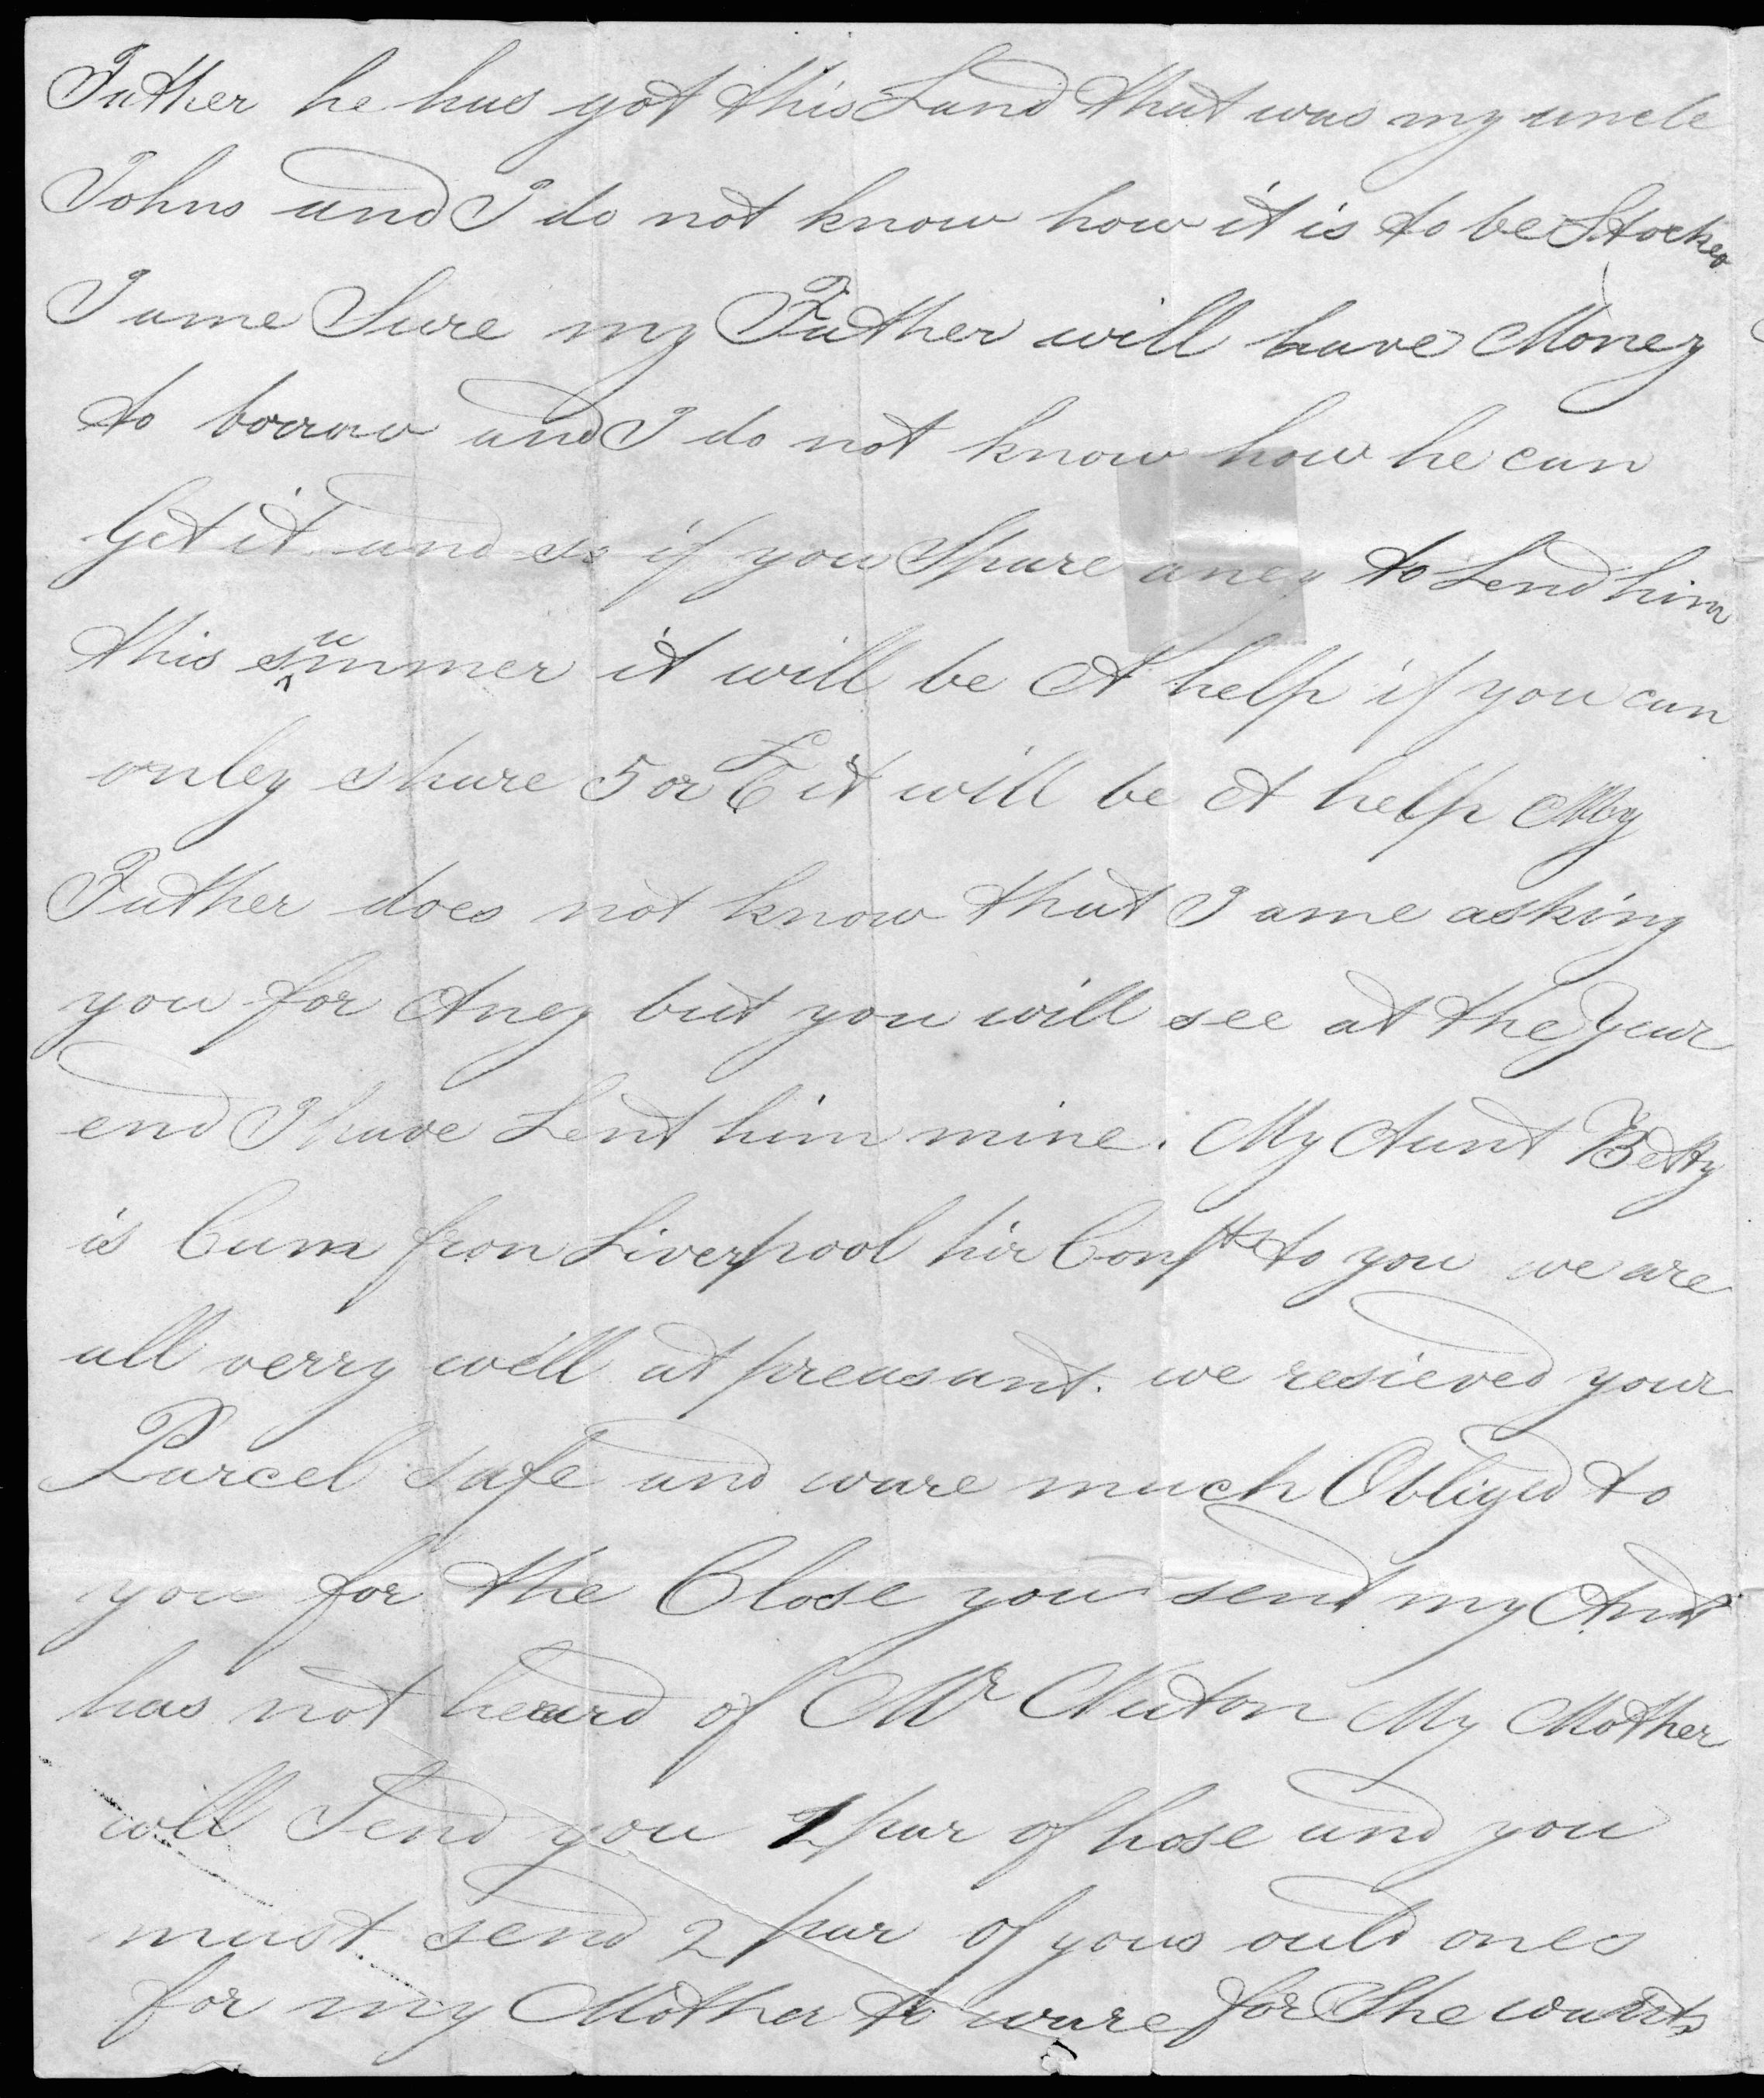 Father he has got this Land that was my uncle
Johns and I do not know how it is to be Stocked
I ame Sure my Father will have Money
to borrow and I do not know how he can
Get it and if you Spare aney to Lend him
this summer it will be A help if you can
onley spare 5 or £6 it will be A help My
Father does not know that I ame asking
you for Aney but you will see at the Year
end I have Lent him mine. My Aunt Betty
is Cum from Liverpool hir Compts to you we are
all verry well at preasant. we resieved your
Parcel safe and ware much Obliged to
you for the Close you send my Ant
has not heard of Mr Nuton My Mother
will Send you 1 par of hose and you
must send 2 par of yous ould ones
for my Mother to ware for She wants